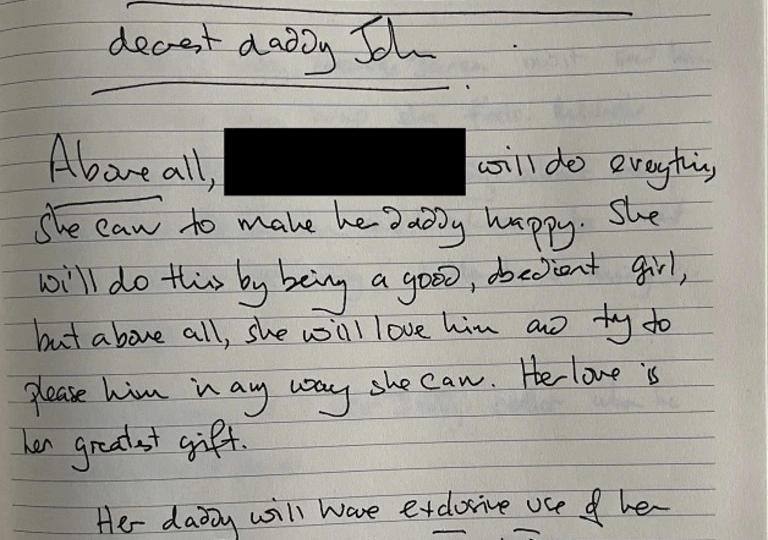 dearest daddy John
Above all, will do everything
she can to make her daddy happy. She
will do this by being a good, obedient girl,
but above all, she will love him and try to
please him in any way she can. Her love is
her greatest gift.
Her daddy will have exclusive use of her